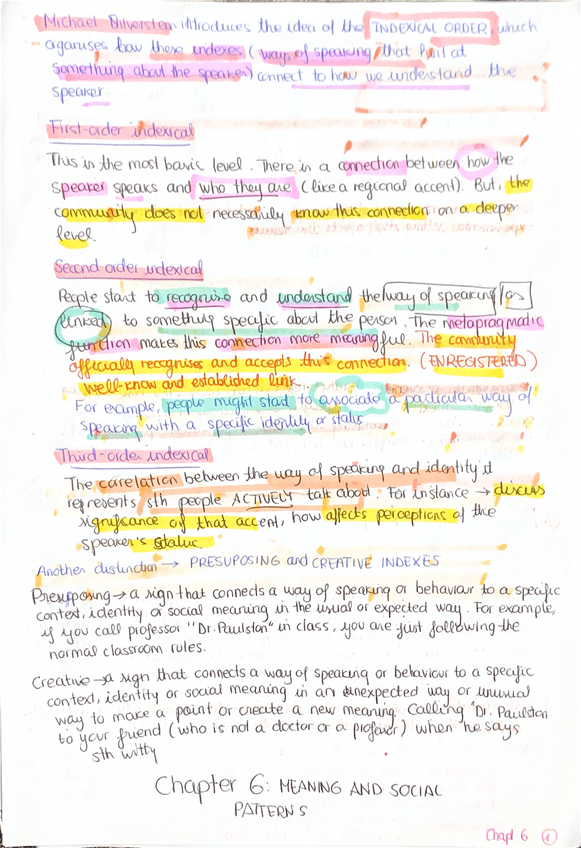 Michael Silverstein introduces the idea of the INDEXICAL ORDER, which
organises how these indexes (ways of speaking that hint at
something about the speaker) connect to how we understand the
speaker.
First-order indexical
This is the most basic level. There is a connection between how the
speaker speaks and who they are (like a regional accent). But, the
community does not necessarily know this connection on a deeper
level.
Second order indexical
People start to recognise and understand the way of speaking as
linked to something specific about the person. The metapragmatic
function makes this connection more meaningful. The community
officially recognises and accepts this connection. (ENREGISTERED)
well-know and established link.
For example, people might start to associate a particular way of
speaking with a specific identity or status
Third-order indexical
The correlation between the way of speaking and identity it
represents sth people ACTIVELY talk about. For instance → discuss
significance of that accent, how affects perceptions of the
speaker's status.
Another distinction → PRESUPOSING and CREATIVE INDEXES
Presupposing → a sign that connects a way of speaking or behaviour to a specific
context, identity or social meaning in the usual or expected way. For example,
if you call professor "Dr. Paulston" in class, you are just following the
normal classroom rules.
Creative → a sign that connects a way of speaking or behaviour to a specific
context, identity or social meaning in an unexpected way or unusual
way to make a point or create a new meaning. Calling "Dr. Paulston
to your friend (who is not a doctor or a profesor) when he says
sth witty
Chapter 6: MEANING AND SOCIAL
PATTERNS
Chapt 6 1